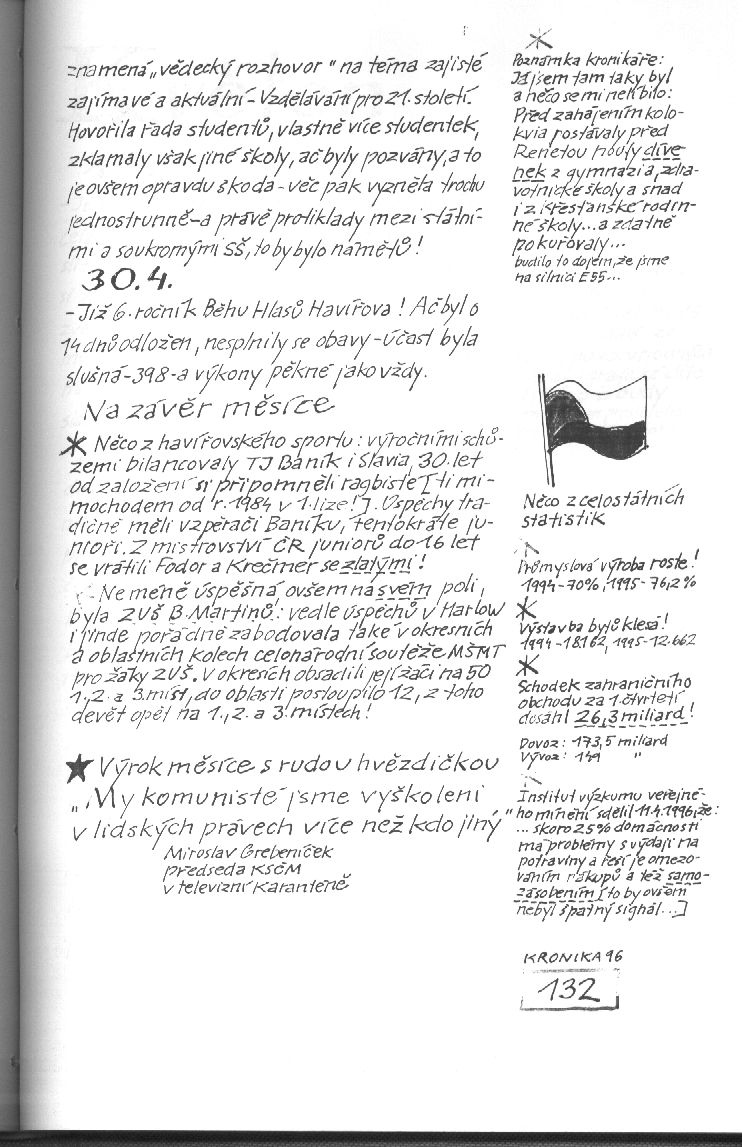 znamená „vědecký rozhovor" na téma zajisté
zajímavé a aktuální - Vzdělávání pro 21. století.
Hovořila řada studentů, vlastně více studentek,
zklamaly však jiné školy, ač byly pozvány, a to
je ovšem opravdu škoda - věc pak vyzněla trochu
jednostrunně - a právě protiklady mezi státní-
mi a soukromými SŠ, to by bylo námětů!
30.4.
- Již 6. ročník Běhu Hlasů Havířova! Ač byl o
14 dnů odložen, nesplnily se obavy - účast byla
slušná - 398 - a výkony pěkné jako vždy.
Na závěr měsíce
* Něco z havířovského sportu: výročními schů-
zemi bilancovaly TJ Baník i Slavia, 30. let
od založení si připomněli ragbisté [ti mi-
mochodem od r. 1984 v 1. lize!]. Úspěchy tra-
dičně měli vzpěrači Baníku, tentokráte ju-
nioři. Z mistrovství ČR juniorů do 16 let
se vrátili Fodor a Krečmer se zlatými!
Neméně úspěšná ovšem na svém poli,
byla ZUŠ B. Martinů: vedle úspěchů v Harlow
i jinde pořádně zabodovala také v okresních
a oblastních kolech celonárodní soutěže MŠMT
pro žáky ZUŠ. V okresích obsadili její žáci na 50
1., 2. a 3. míst, do oblasti postoupilo 12, z toho
devět opět na 1., 2. a 3. místech!
★ Výrok měsíce s rudou hvězdičkou
„My komunisté jsme vyškoleni
v lidských právech více než kdo jiný"
Miroslav Grebeníček
předseda KSČM
v televizní Karanténě
*
Poznámka kronikáře:
Já jsem tam taky byl
a něco se mi nelíbilo:
Před zahájením kolo-
kvia postávaly před
Renetou houfy díve-
nek z gymnázia, zdra-
votnické školy a snad
i z Křesťanské rodin-
né školy... a zdatně
pokuřovaly...
budilo to dojem, že jsme
na silnici E55...
Něco z celostátních
statistik
Průmyslová výroba roste!
1994 - 70%, 1995 - 76,2%
*
Výstavba bytů klesá!
1994 - 18.162, 1995 - 12.662
*
Schodek zahraničního
obchodu za 1. čtvrtletí
dosáhl 26,3 miliard!
Dovoz: 173,5 miliard
Vývoz: 147 "
Institut výzkumu veřejné-
ho mínění sdělil 11.4.1996, že:
... skoro 25% domácností
má problémy s výdaji na
potraviny a řeší je omezo-
váním nákupů a též samo-
zásobením [to by ovšem
nebyl špatný signál...]
KRONIKA 96
132